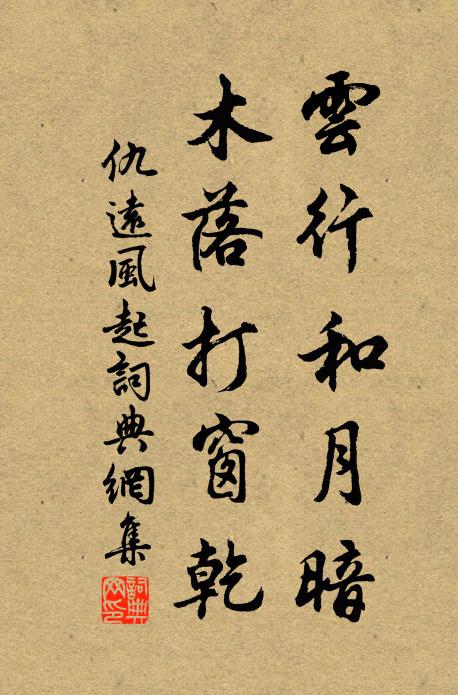 雲行和月暗
木落打窗乾
仇遠風起詞典網集
詞典网印